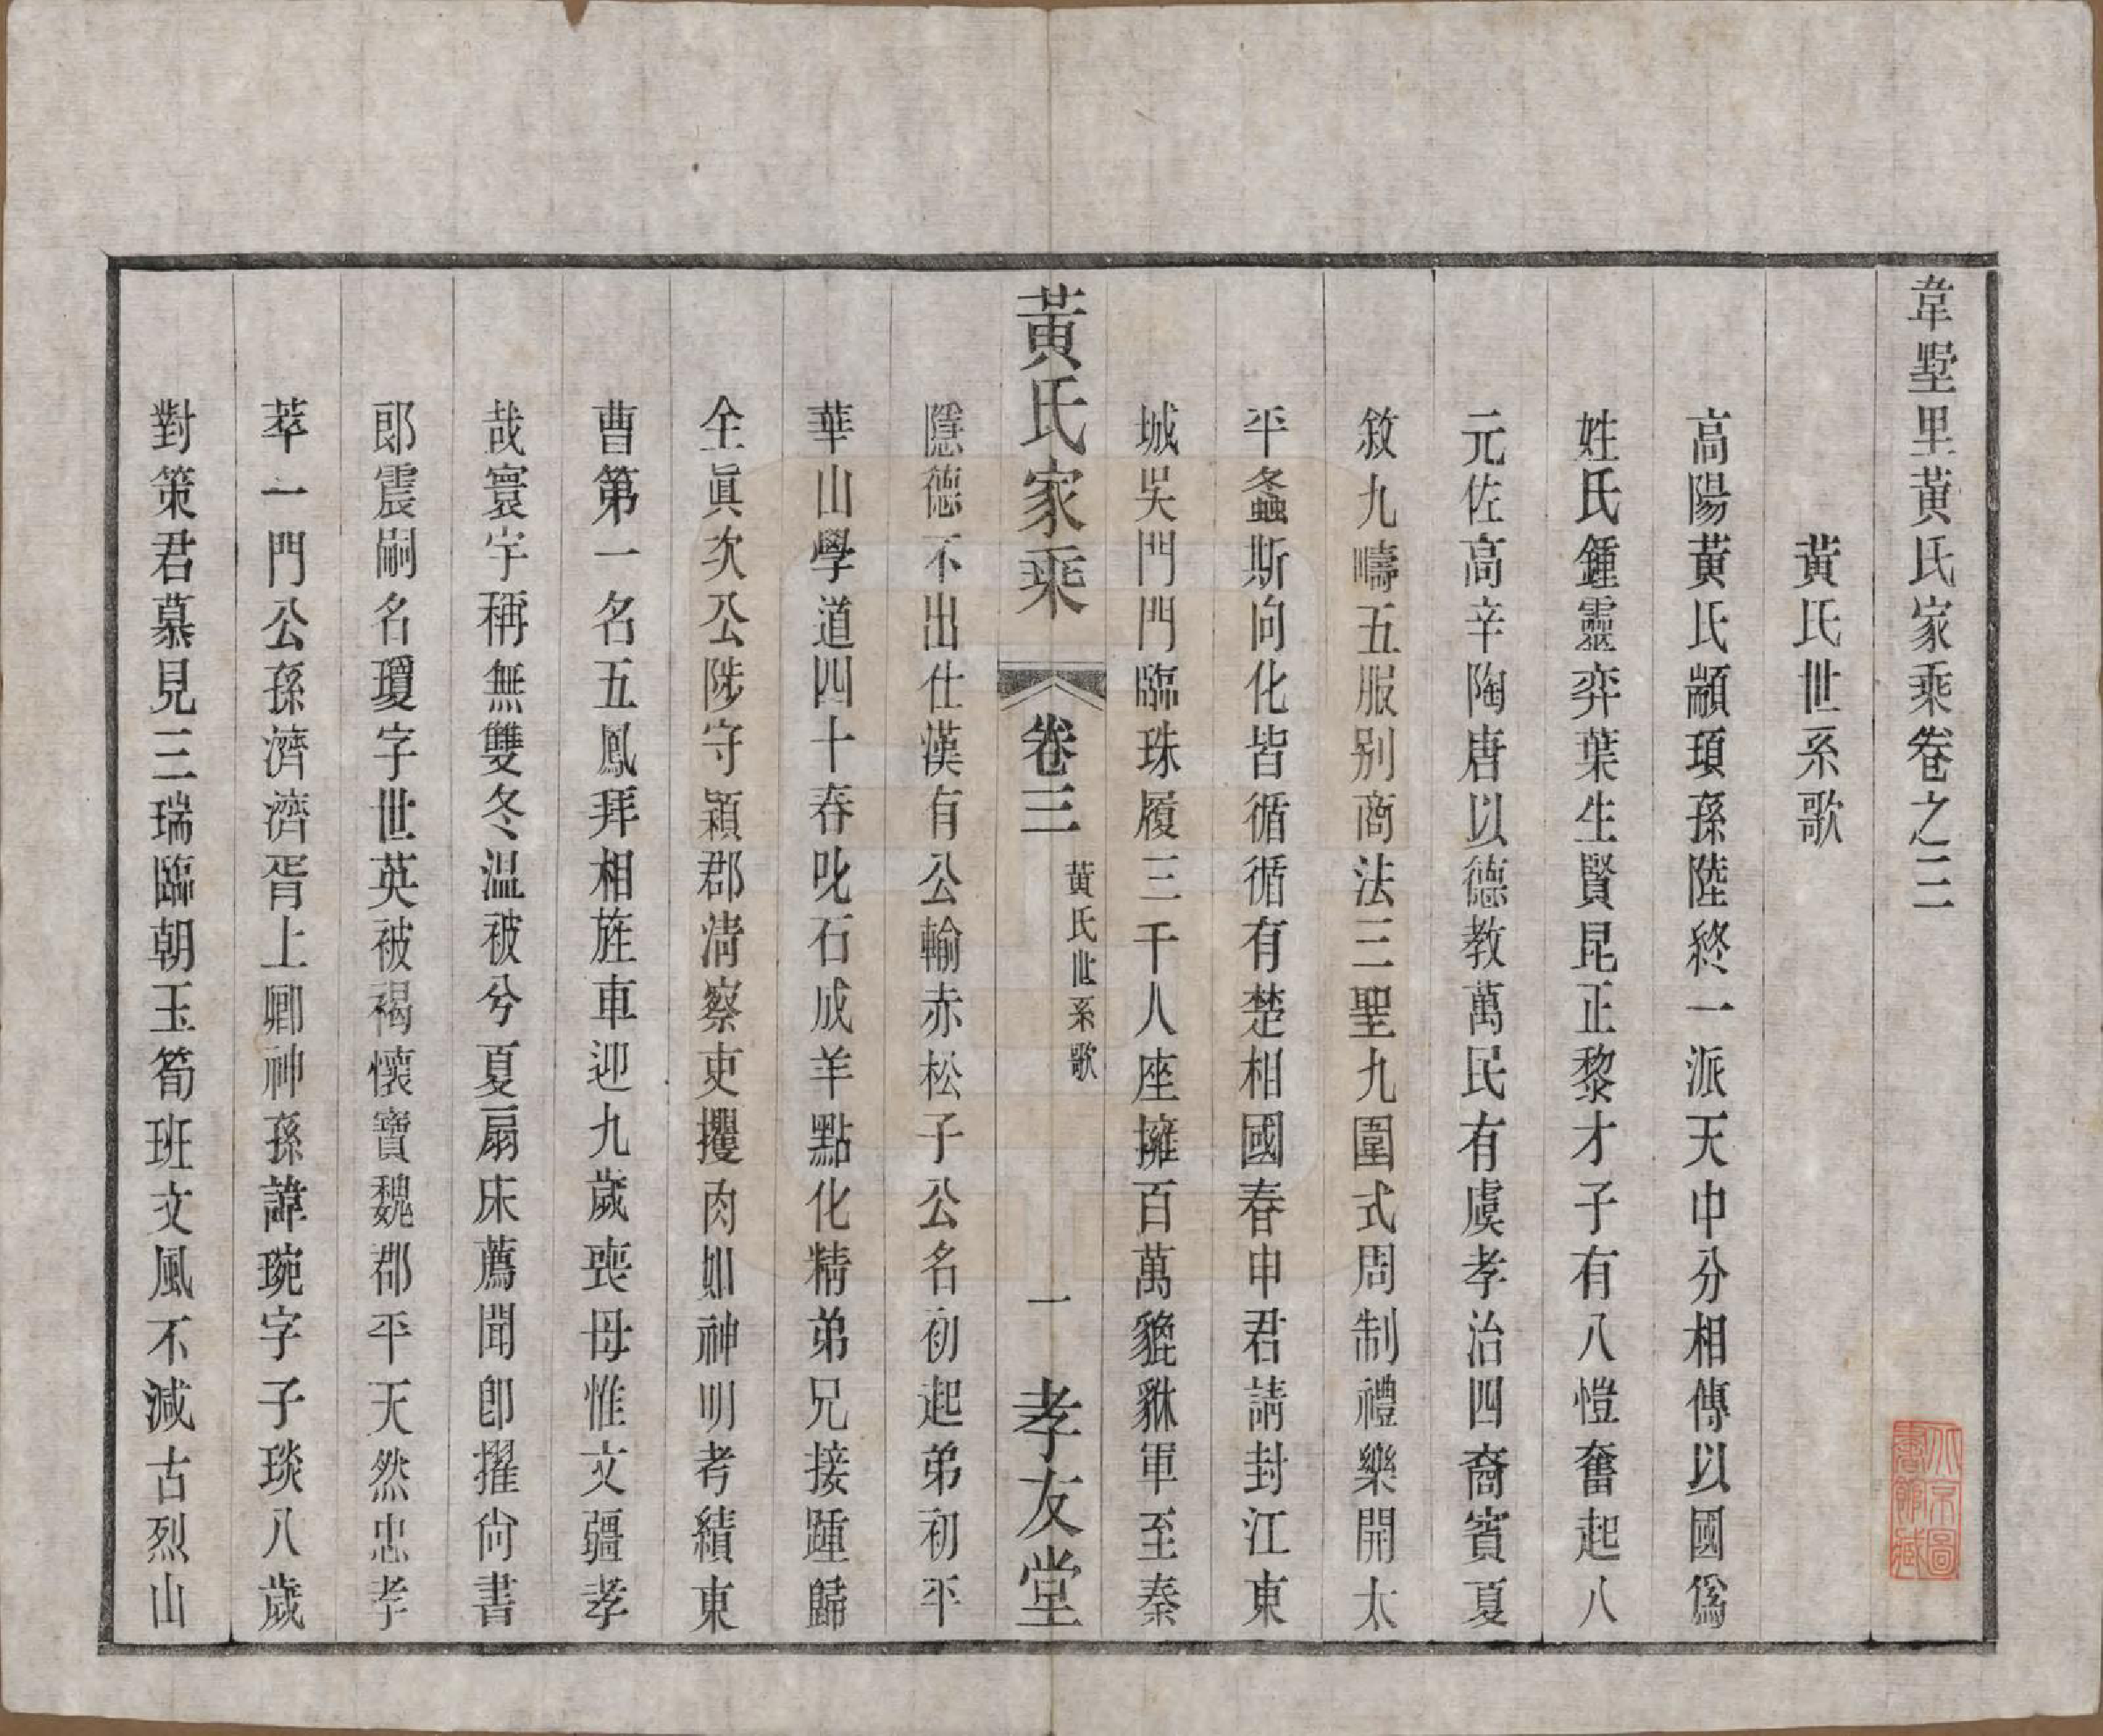 韋墅里黃氏家乘卷之三
黃氏世系歌
高陽黃氏顓頊孫陸終一派天中分相傳以國爲
姓氏鍾靈弈葉生賢昆正黎才子有八愷奮起八
元佐高辛陶唐以德教萬民有虞孝治四裔賓夏
敘九疇五服别商法三聖九圍式周制禮樂開太
平螽斯向化皆循循有楚相國春申君請封江東
城吳門門臨珠履三千人座擁百萬貔貅軍至秦
黃氏家乘
卷三
黃氏世系歌
一
孝友堂
隱德不出仕漢有公輸赤松子公名初起弟初平
華山學道四十春叱石成羊點化精弟兄接踵歸
全眞次公陟守潁郡淸察吏攫肉如神明考績東
曹第一名五鳳拜相旌車迎九歲喪母惟文疆孝
哉寰宇稱無雙冬温被兮夏扇床薦聞卽擢尙書
郎震嗣名瓊字世英被褐懷寶魏郡平天然忠孝
萃一門公孫濟濟胥上卿神孫諱琬字子琰八歲
對策君慕見三瑞臨朝玉筍班文風不減古烈山